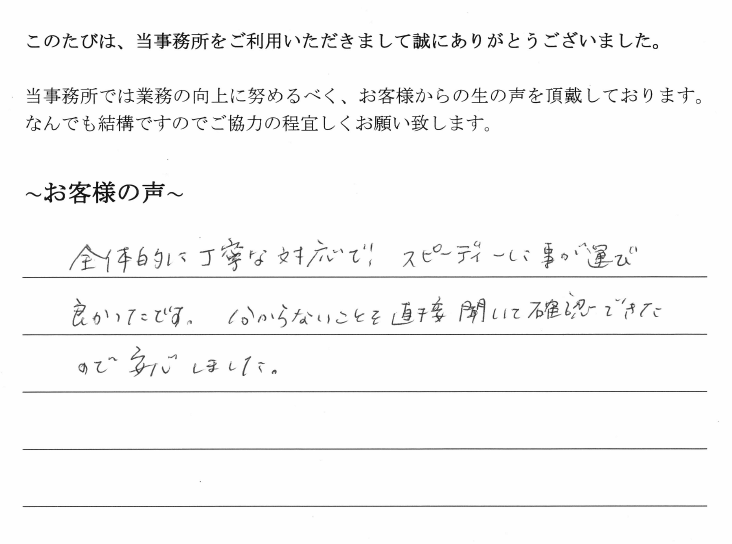 このたびは、当事務所をご利用いただきまして誠にありがとうございました。
当事務所では業務の向上に努めるべく、お客様からの生の声を頂戴しております。
なんでも結構ですのでご協力の程宜しくお願い致します。
~お客様の声~
全体的に丁寧な対応で、スピーディーに事が運び
良かったです。分からないことを直接聞いて確認できた
ので安心しました。